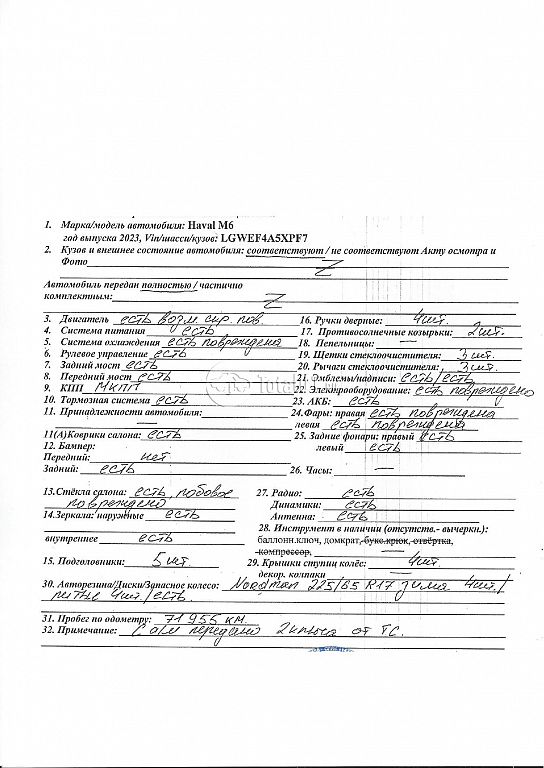 1. Марка/модель автомобиля: Haval M6
год выпуска 2023, Vin/шасси/кузов: LGWEF4A5XPF7
2. Кузов и внешнее состояние автомобиля: соответствуют / не соответствуют Акту осмотра и
Фото
Автомобиль передан полностью / частично
комплектным:
3. Двигатель есть возм. скр. пов.
4. Система питания есть
5. Система охлаждения есть повреждена
6. Рулевое управление есть
7. Задний мост есть
8. Передний мост есть
9. КПП МКПП
10. Тормозная система есть
11. Принадлежности автомобиля:
—
11(А)Коврики салона: есть
12. Бампер:
Передний: нет
Задний: есть
13.Стёкла салона: есть, лобовое
повреждено
14.Зеркала: наружные есть
внутреннее есть
15. Подголовники: 5 шт.
16. Ручки дверные: 4шт.
17. Противосолнечные козырьки: 2шт.
18. Пепельницы: —
19. Щетки стеклоочистителя: 3 шт.
20. Рычаги стеклоочистителя: 3 шт.
21. Эмблемы/надписи: есть/есть
22. Электрооборудование: есть повреждено
23. АКБ: есть
24.Фары: правая есть повреждена
левая есть повреждена
25. Задние фонари: правый есть
левый есть
26. Часы: —
27. Радио: есть
Динамики: есть
Антенна: есть
28. Инструмент в наличии (отсутств.- вычеркн.):
баллонн.ключ, домкрат, букс.крюк, отвёртка,
компрессор, —
29. Крышки ступиц колёс: 4шт.
декор. колпаки —
30. Авторезина/Диски/Запасное колесо: Nordman 225/65 R17 зима 4шт/
литые 4шт/есть
31. Пробег по одометру: 71955 км.
32. Примечание: С а/м передано 2 ключа от ТС.
Total